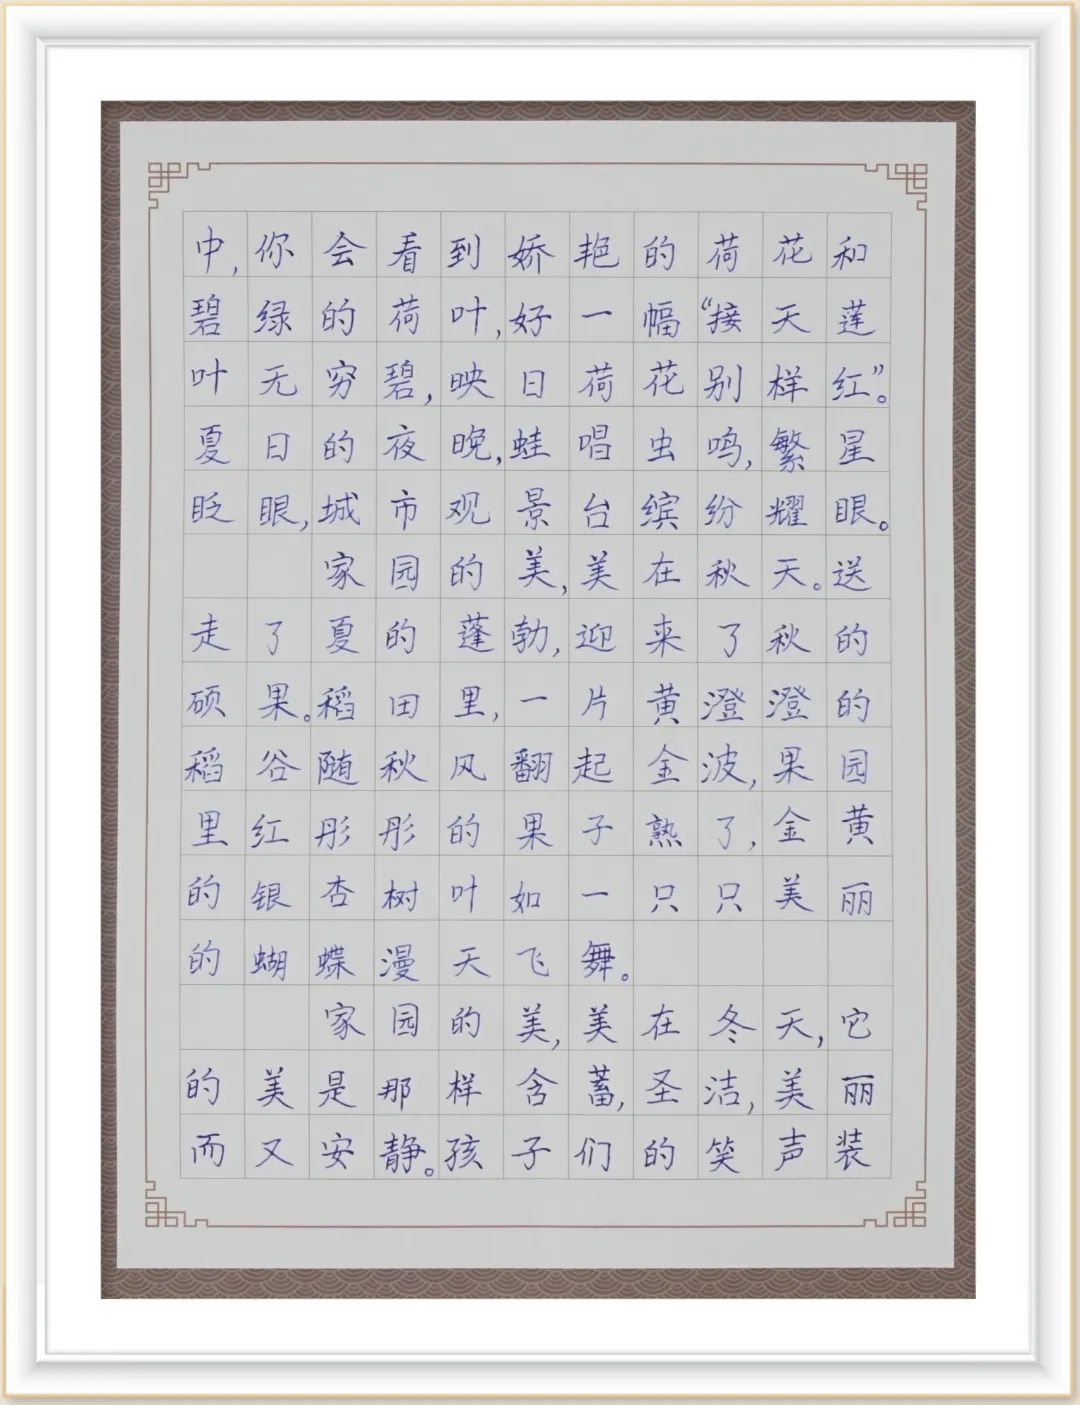 中,你会看到娇艳的荷花和
碧绿的荷叶,好一幅“接天莲
叶无穷碧,映日荷花别样红”。
夏日的夜晚,蛙唱虫鸣,繁星
眨眼,城市观景台缤纷耀眼。
家园的美,美在秋天。送
走了夏的蓬勃,迎来了秋的
硕果。稻田里,一片黄澄澄的
稻谷随秋风翻起金波,果园
里红彤彤的果子熟了,金黄
的银杏树叶如一只只美丽
的蝴蝶漫天飞舞。
家园的美,美在冬天,它
的美是那样含蓄,圣洁,美丽
而又安静。孩子们的笑声装